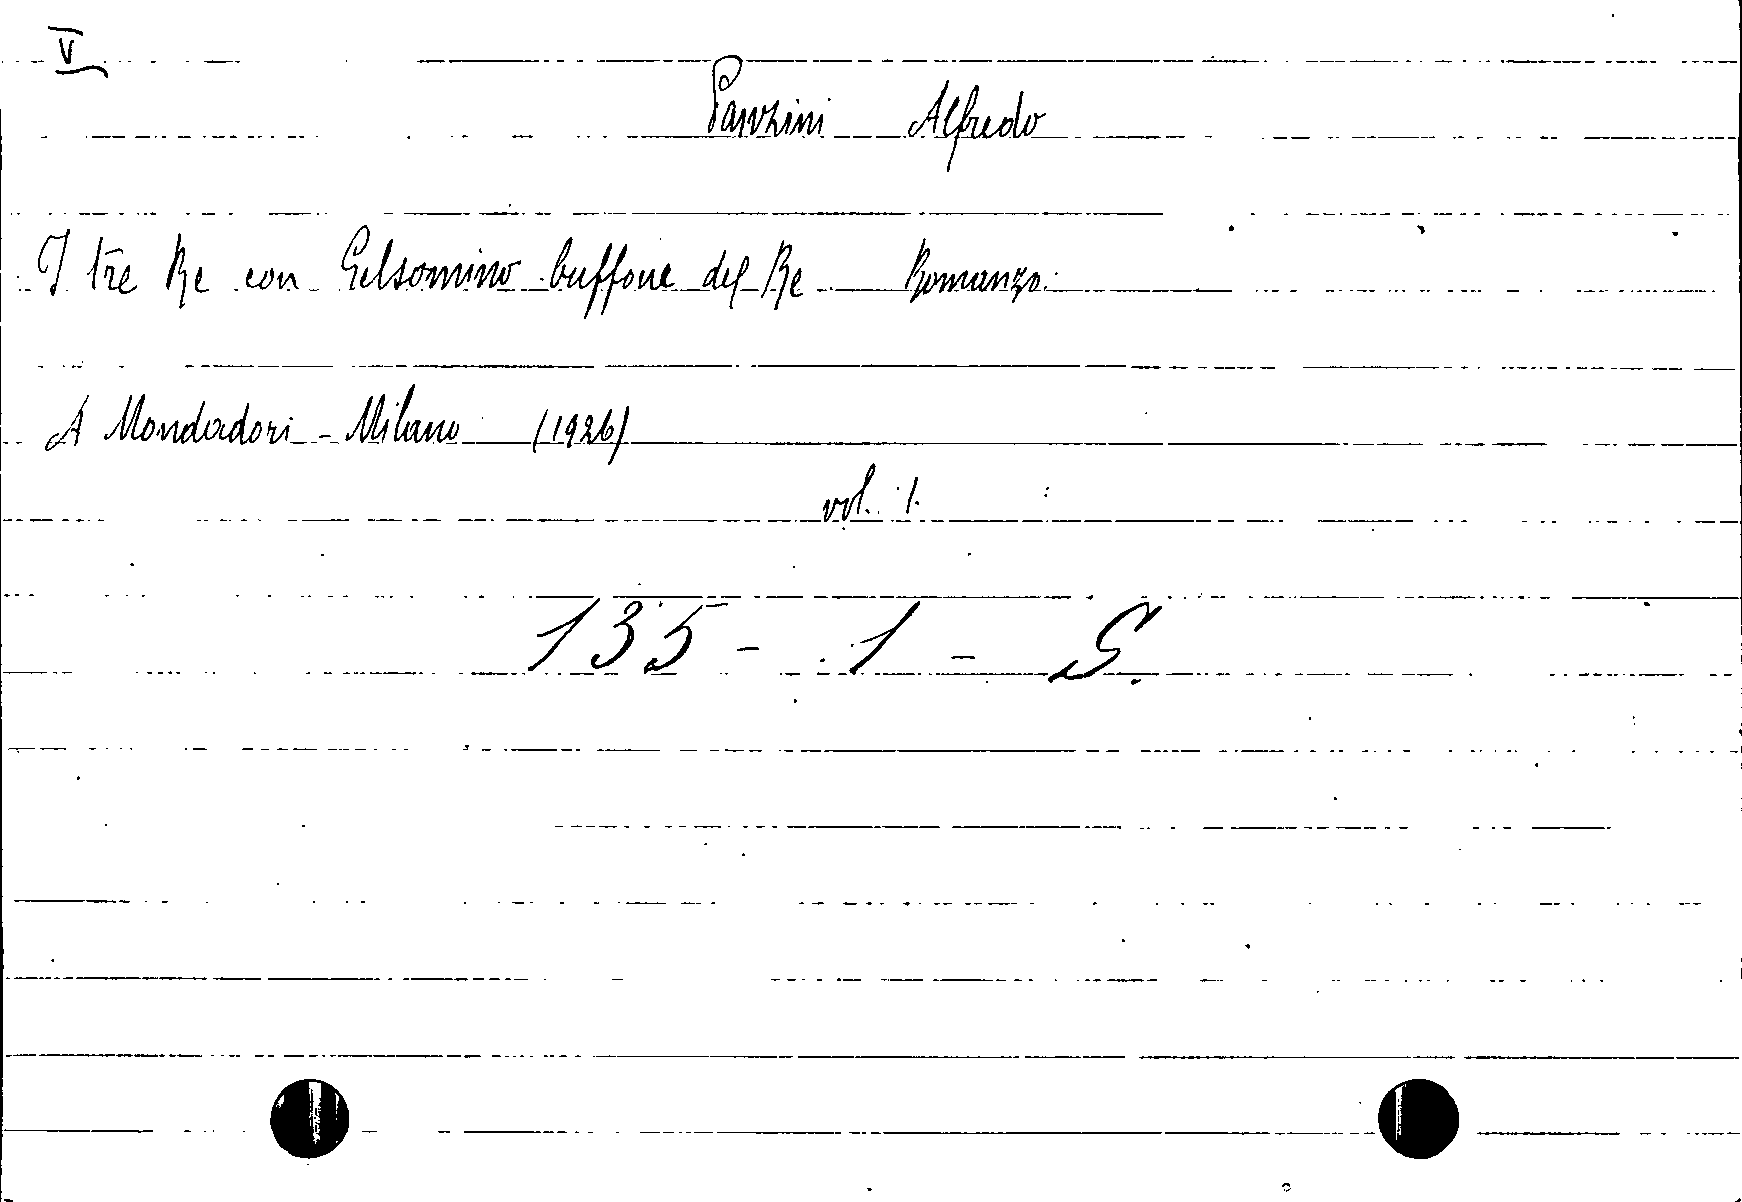 V
Panzini Alfredo
I tre Re con Gelsomino buffone del Re Romanzo.
A Mondadori - Milano (1926)
vol. 1.
135 - 1 - S.